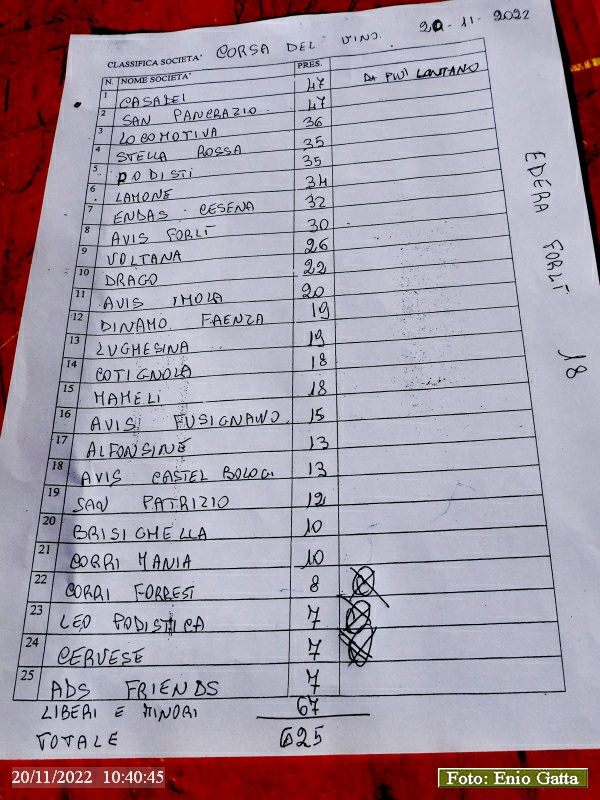 CLASSIFICA SOCIETA' CORSA DEL VINO. 20-11-2022
N. NOME SOCIETA' PRES. DA PIÙ LONTANO
1 CASALEI 47
2 SAN PANCRAZIO 47
3 LOCOMOTIVA 36
4 STELLA ROSSA 35
5 PODISTI 35
6 LAMONE 34
7 ENDAS CESENA 32
8 AVIS FORLÌ 30
9 VOLTANA 26
10 DRAGO 22
11 AVIS IMOLA 20
12 DINAMO FAENZA 19
13 LUGHESINA 19
14 COTIGNOLA 18
15 MAMELI 18
16 AVIS FUSIGNANO 15
17 ALFONSINE 13
18 AVIS CASTEL BOLOG. 13
19 SAN PATRIZIO 12
20 BRISIGHELLA 10
21 CORRI MANIA 10
22 CORRI FORREST 8
23 LEO PODISTICA 7
24 CERVESE 7
25 ADS FRIENDS 7
LIBERI E MINORI 67
TOTALE 625
EDERA FORLÌ 18
20/11/2022 10:40:45
Foto: Enio Gatta